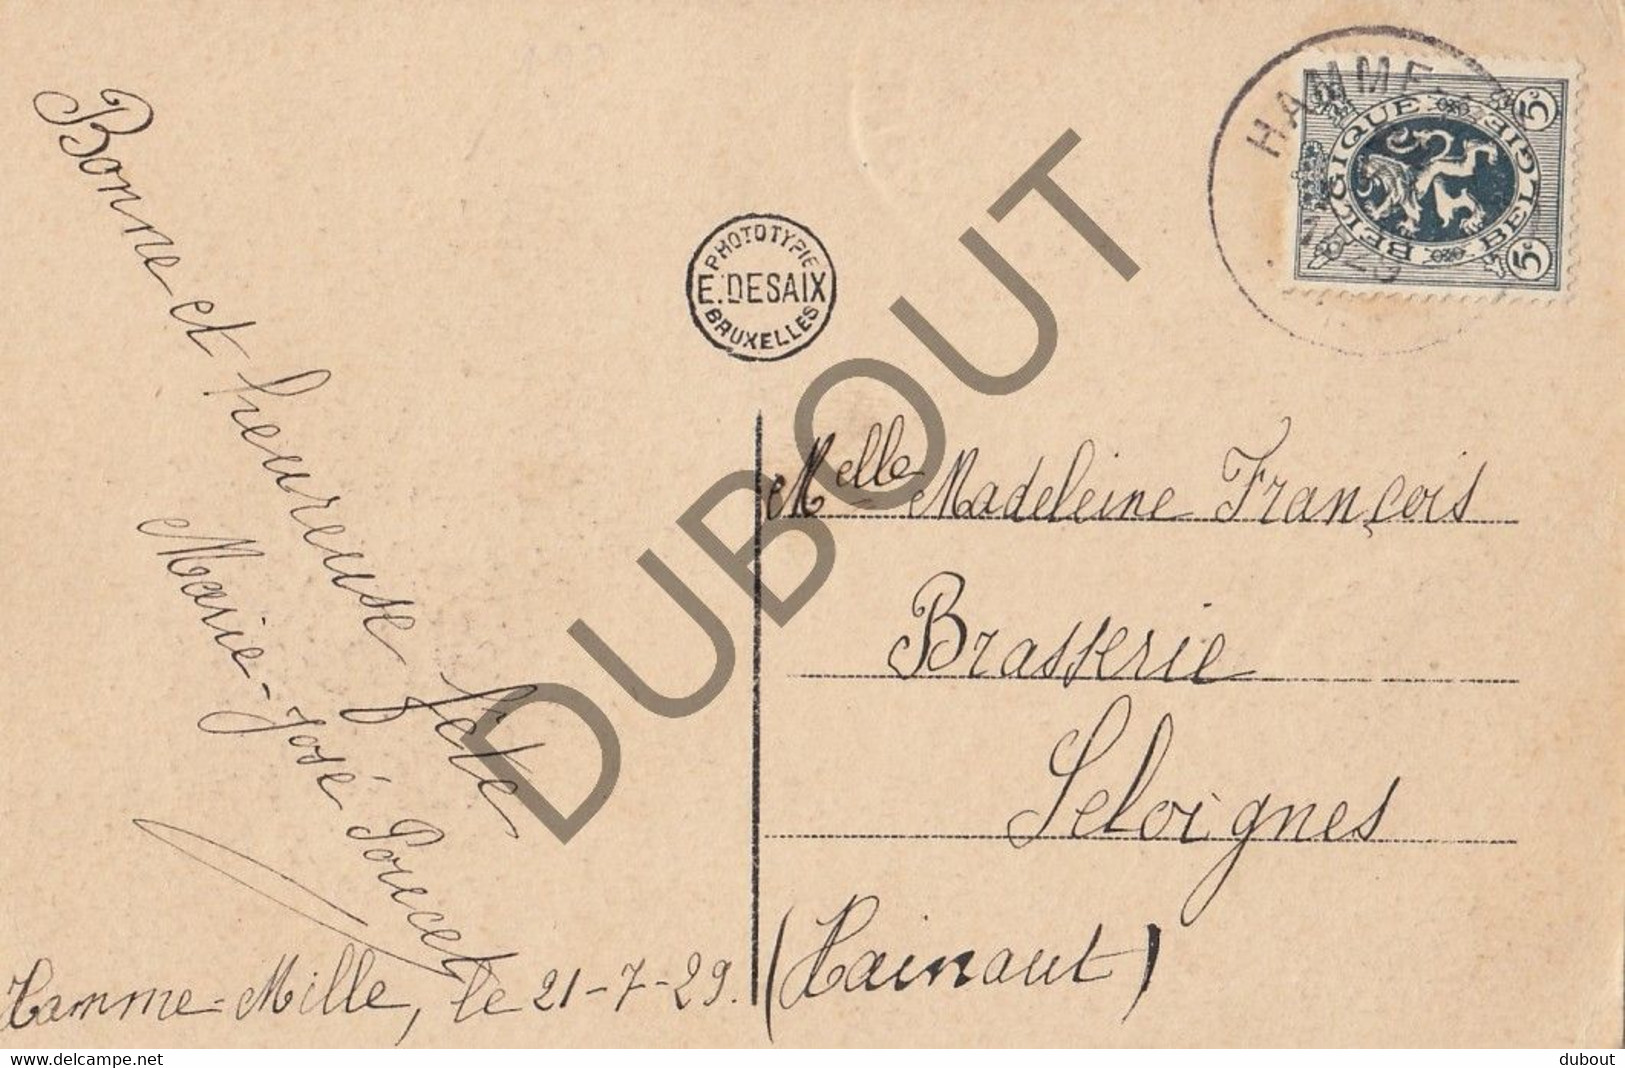 Bonne et heureuse fête
Marie-José Poncet
Hamme-Mille, le 21-7-29.
PHOTOTYPIE
E. DESAIX
BRUXELLES
HAMME
BELGIQUE BELGIE
5c
5c
Melle Madeleine François
Brasserie
Seloignes
(Hainaut)
DUBOUT
www.delcampe.net
dubout